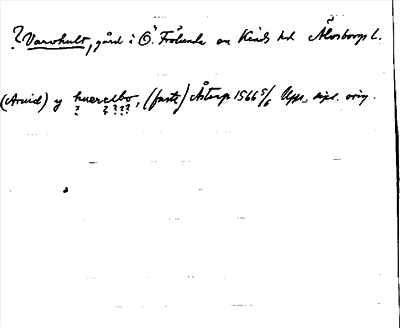 ? Varvhult, gård i Ö. Frölunda sn Kinds hd Älvsborgs l.
(Arvid) y hwerelbo, (faste) Åstorp 1566 5/6 Upps. dipl. orig.
? ? ? ?